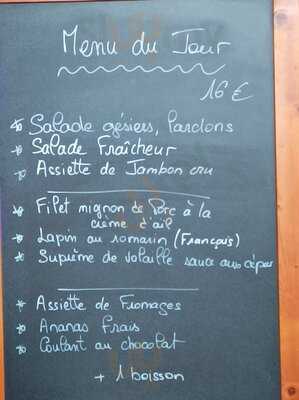 Menu du Jour
16 €
* Salade gésiers, Lardons
* Salade Fraîcheur
* Assiette de Jambon cru
* Filet mignon de Porc à la
crème d'ail
* Lapin au romarin (Français)
* Suprème de volaille sauce aux cèpes
* Assiette de Fromages
* Ananas Frais
* Coulant au chocolat
+ 1 boisson